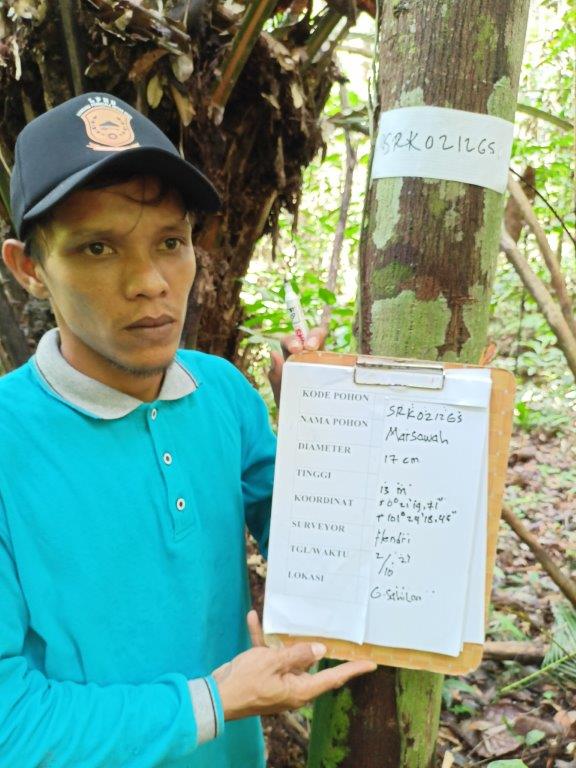 SRK0212GS
KODE POHON SRK0212GS
NAMA POHON Marsawah
DIAMETER 17 cm
TINGGI 13 m
KOORDINAT +0°21'19,71"
+101°29'18,45"
SURVEYOR Hendri
TGL/WAKTU 2/10 '21
LOKASI G.Sahilan